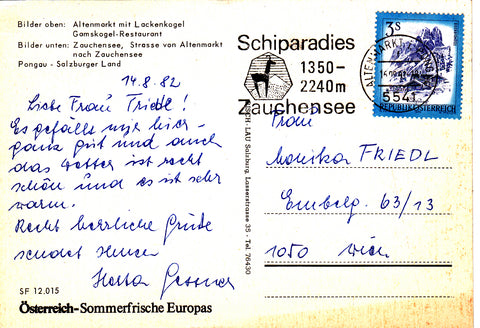 Bilder oben: Altenmarkt mit Lackenkogel
Gamskogel-Restaurant
Bilder unten: Zauchensee, Strasse von Altenmarkt
nach Zauchensee
Pongau - Salzburger Land
14.8.82
Liebe Frau Friedl!
Es gefällt mir hier
ganz gut und auch
das Wetter ist recht
schön und es ist sehr
warm.
Recht herzliche Grüße
sendet Ihnen
Herta
SF 12.015
Österreich-Sommerfrische Europas
Schiparadies
1350-
2240m
Zauchensee
ALTENMARKT
5541
3S
REPUBLIK ÖSTERREICH
Salzburg, Lasserstrasse 35 - Tel. 76430
Frau
Monika FRIEDL
63/13
1050 Wien